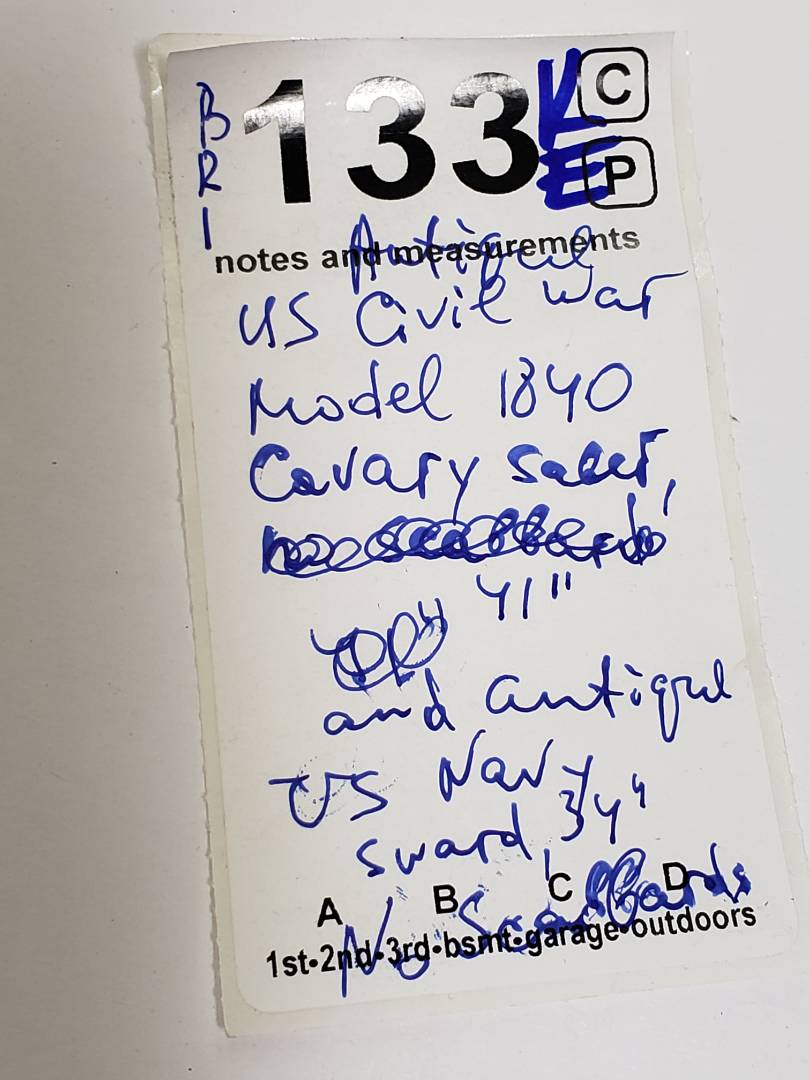 BRI
133
VE
C
P
notes and measurements
Antique
US Civil War
Model 1840
Cavary Saber,
41"
and antique
US Navy
sward, 34"
A B C D
No Scabbards
1st•2nd•3rd•bsmt•garage•outdoors